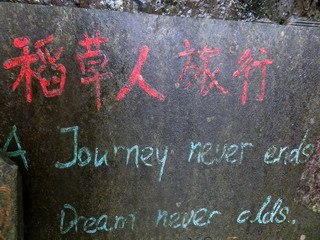 稻草人旅行
A Journey never ends
Dream never olds.